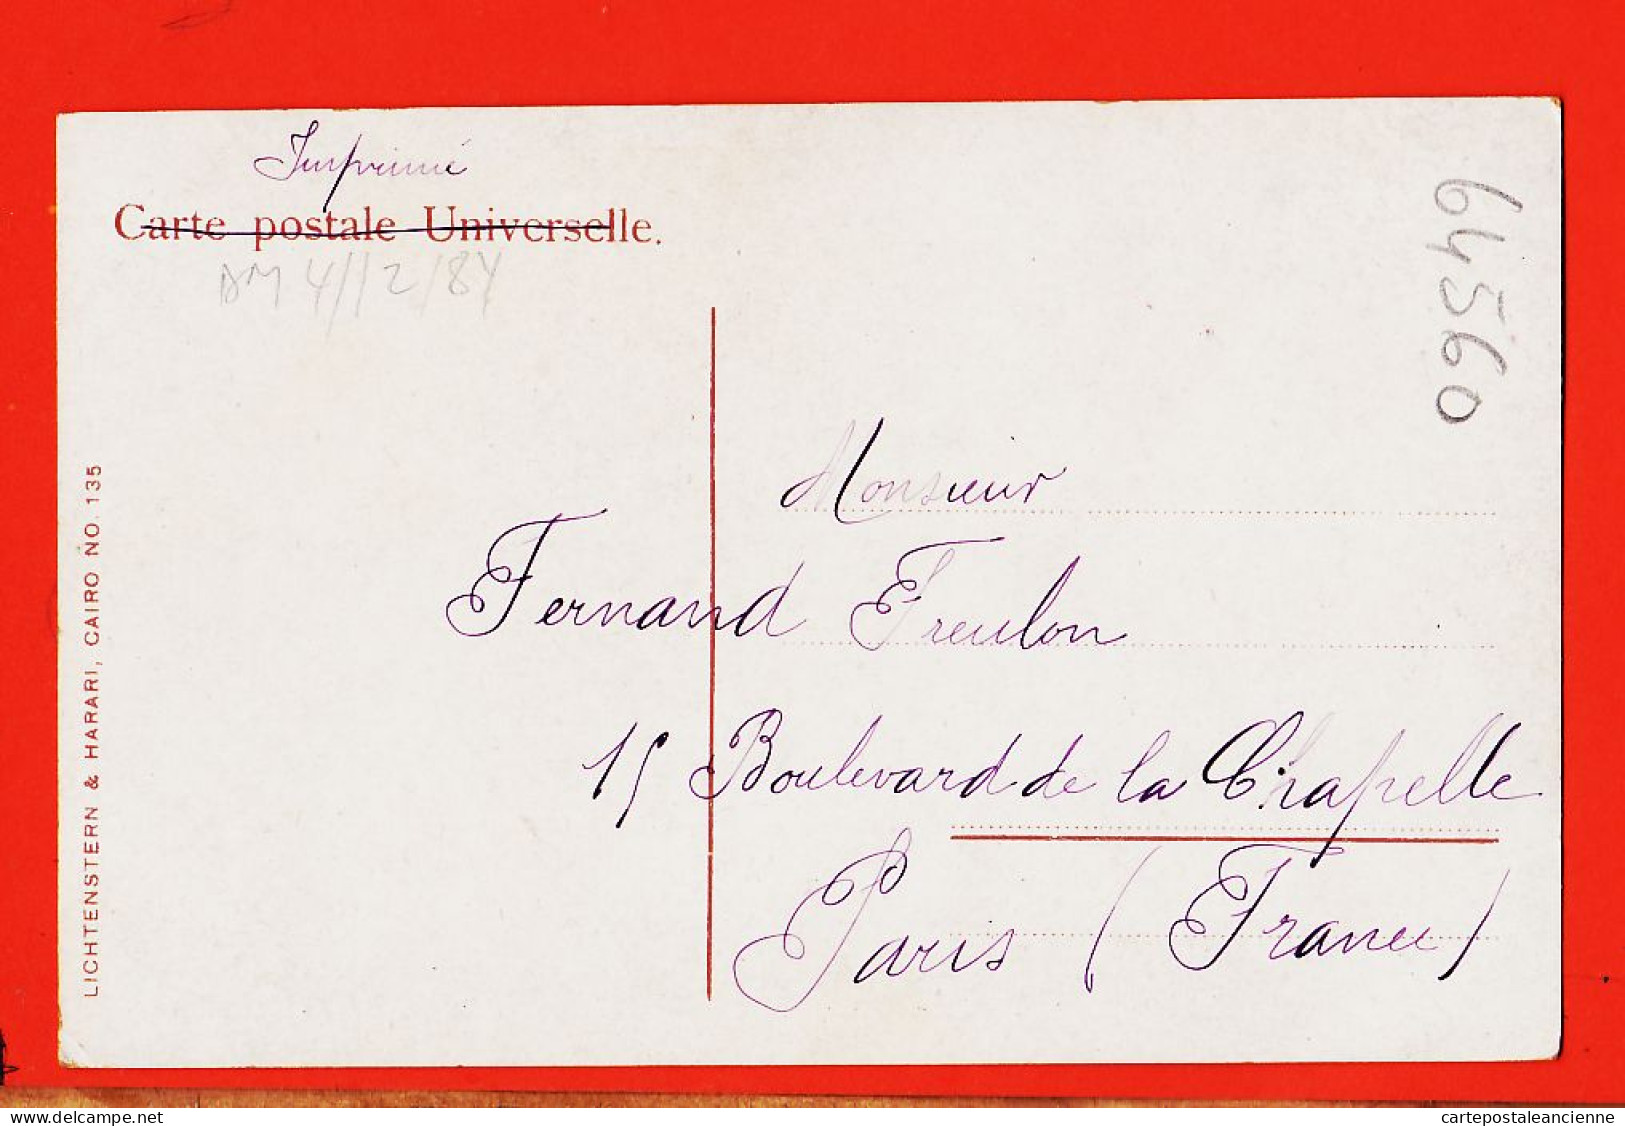 Imprimé
Carte postale Universelle.
AM 4/12/84
64560
Monsieur
Fernand Freulon
15 Boulevard de la Chapelle
Paris (France)
LICHTENSTERN & HARARI, CAIRO NO. 135
delcampe.net
cartepostaleancienne